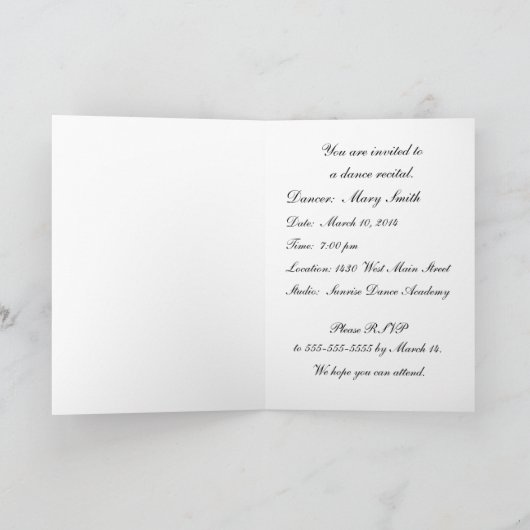 You are invited to
a dance recital.
Dancer: Mary Smith
Date: March 10, 2014
Time: 7:00 pm
Location: 1430 West Main Street
Studio: Sunrise Dance Academy
Please RSVP
to 555-555-5555 by March 14.
We hope you can attend.